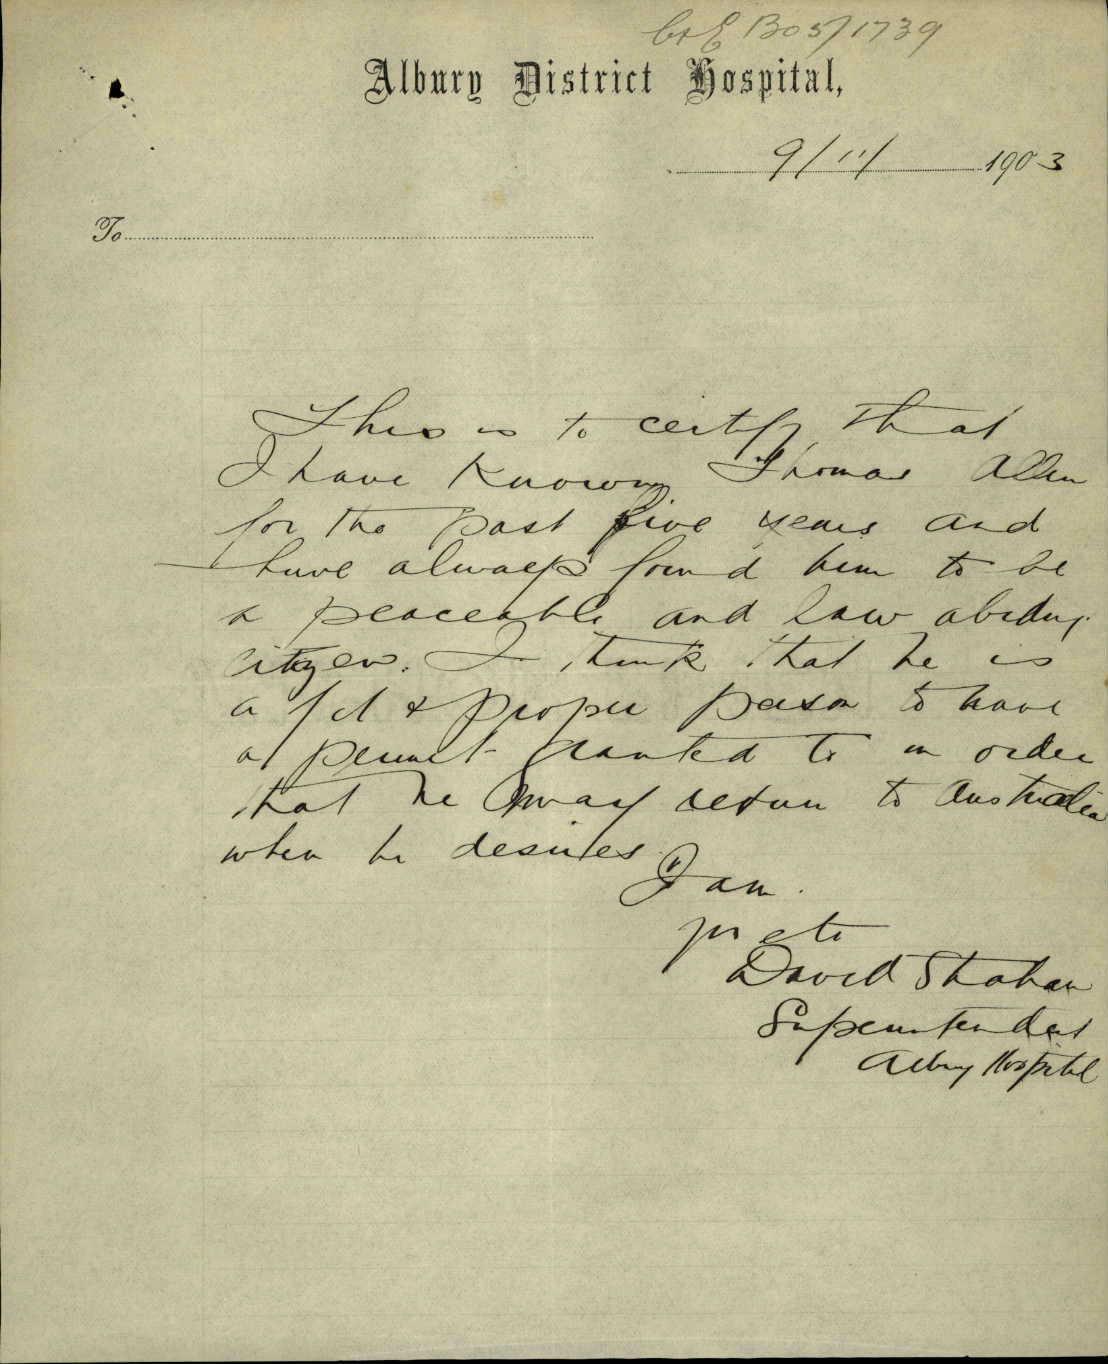 C & E B03/1739
Albury District Hospital,
9/11/ 1903
To
This is to certify that
I have known Thomas Allen
for the past five years and
have always found him to be
a peaceable and law abiding
citizen. I think that he is
a fit & proper person to have
a permit granted to in order
that he may return to Australia
when he desires
I am.
yrs etc
David Strahan
Superintendent
Albury Hospital